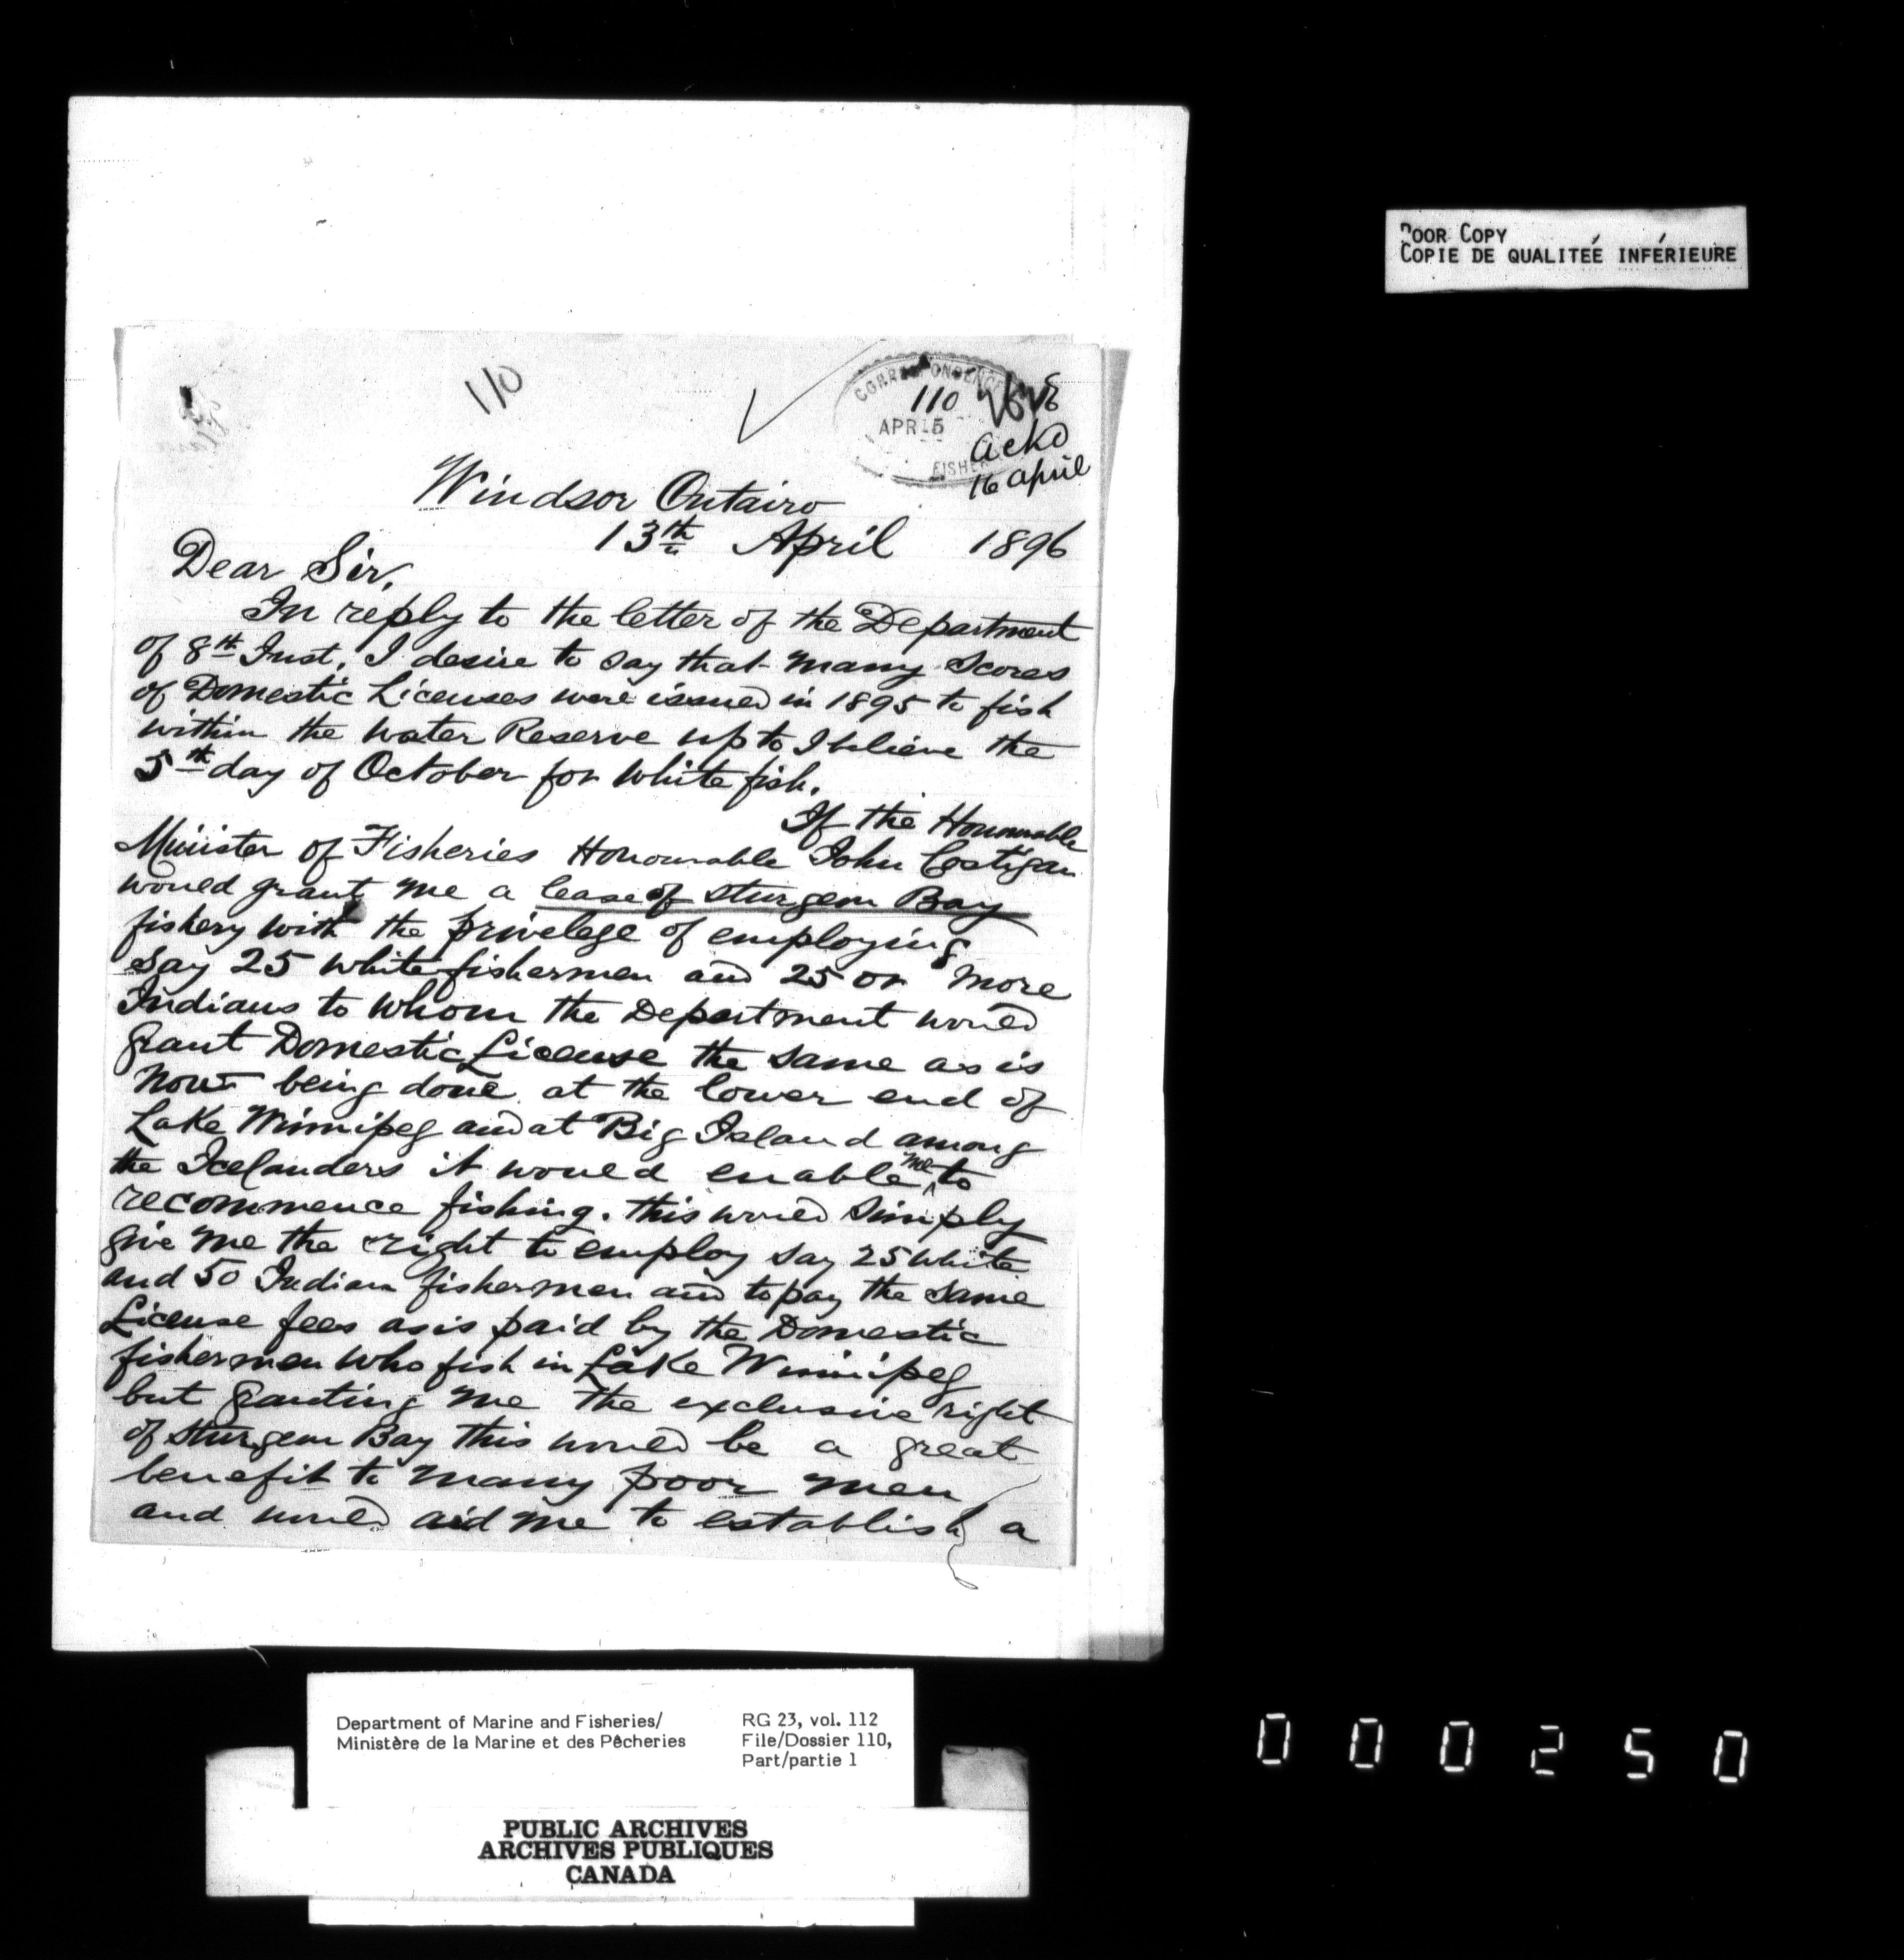 POOR COPY
COPIE DE QUALITEÉ INFÉRIEURE
110
CORRESPONDENCE
110
APR 15
FISHER
ackd
16 april
Windsor Ontairo
13th April 1896
Dear Sir,
In reply to the letter of the Department
of 8th Inst. I desire to say that many Scores
of Domestic Licenses were issued in 1895 to fish
within the water Reserve up to I believe the
5th day of October for white fish.
If the Honourable
Minister of Fisheries Honourable John Costigan
would grant me a lease of Sturgeon Bay
fishery with the privelege of employing
say 25 white fishermen and 25 or more
Indians to whom the Department would
grant Domestic License the same as is
now being done at the lower end of
Lake Winnipeg and at Big Island among
the Icelanders it would enable me to
recommence fishing. this would simply
give me the right to employ say 25 white
and 50 Indian fishermen and to pay the same
License fees as is paid by the Domestic
fishermen who fish in Lake Winnipeg
but granting me the exclusive right
of Sturgeon Bay this would be a great
benefit to many poor men
and would aid me to establish a
Department of Marine and Fisheries/
Ministère de la Marine et des Pêcheries
RG 23, vol. 112
File/Dossier 110,
Part/partie 1
PUBLIC ARCHIVES
ARCHIVES PUBLIQUES
CANADA
000250